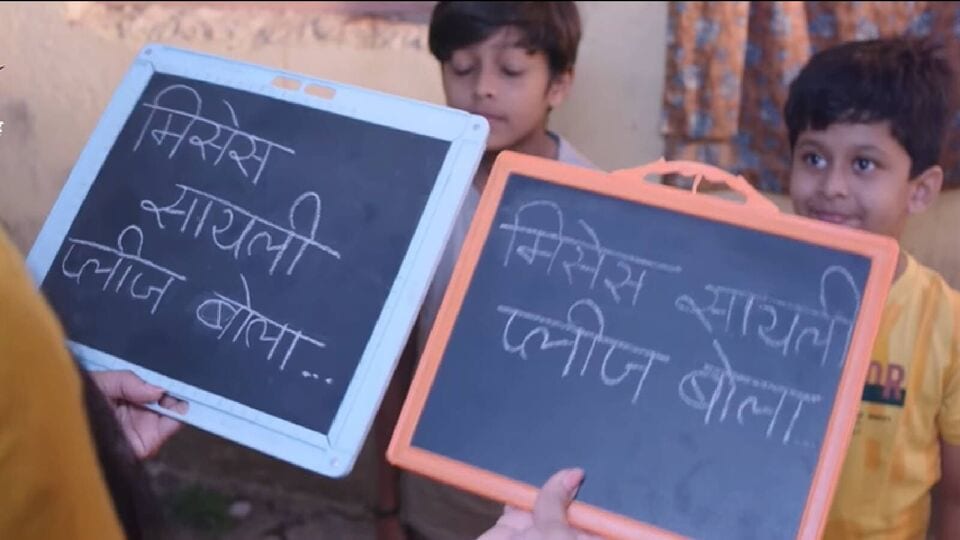 मिसेस
सायली
प्लीज बोला...
मिसेस सायली
प्लीज बोला...
OR